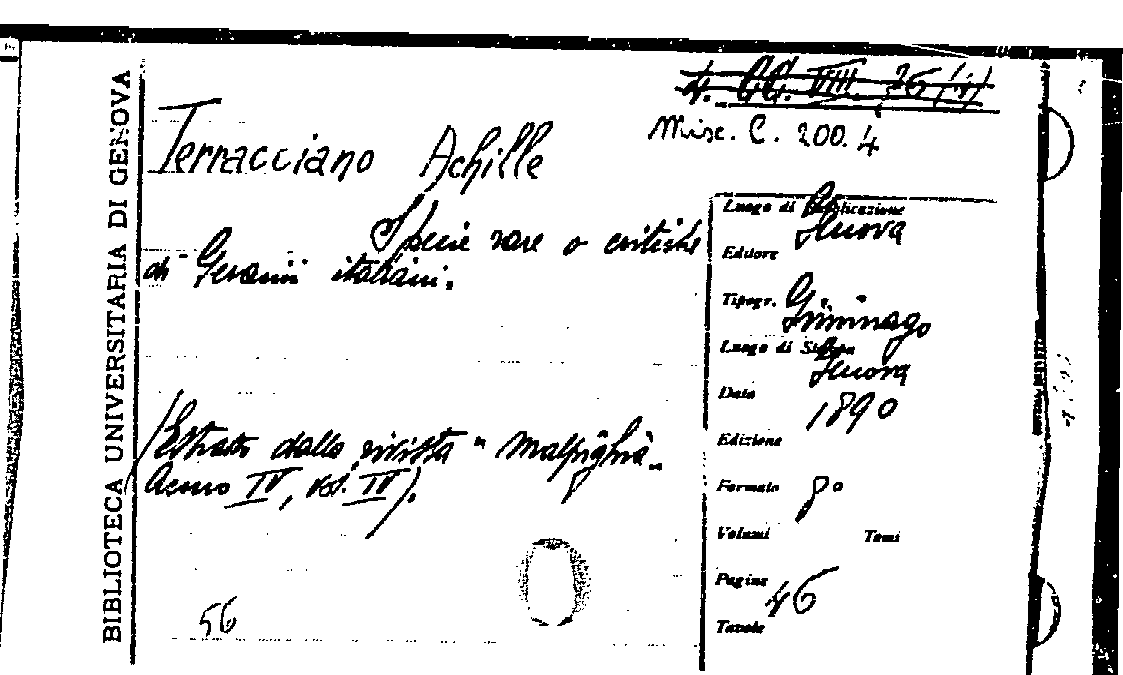 BIBLIOTECA UNIVERSITARIA DI GENOVA
4. CC. VIII. 26
Misc. C. 200.4
Terracciano Achille
Specie rare o critiche
di Geranii italiani.
(Estratto dalla rivista "Malpighia"
Anno IV, vol. IV).
56
Luogo di Pubblicazione Genova
Editore
Tipogr. Ciminago
Luogo di Stampa Genova
Data 1890
Edizione
Formato 8º
Volumi Tomi
Pagine 46
Tavole